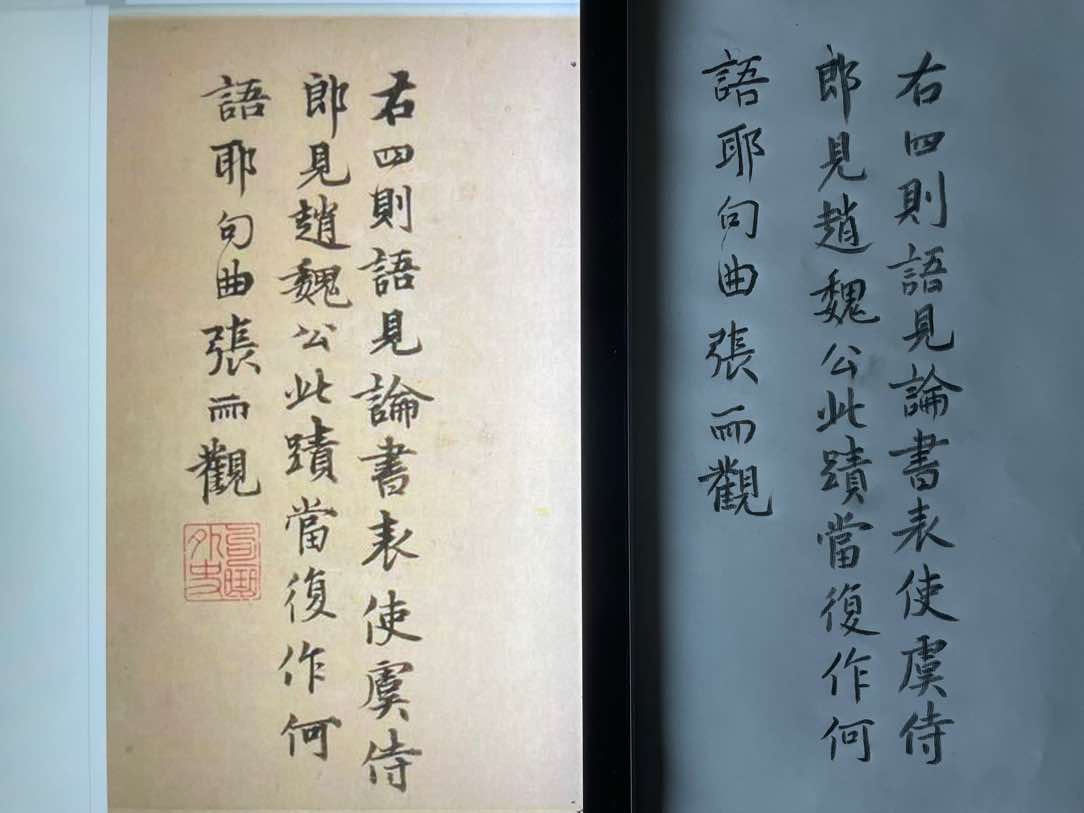 右四則語見論書表使虞侍
郎見趙魏公此蹟當復作何
語耶句曲張雨觀
右四則語見論書表使虞侍
郎見趙魏公此蹟當復作何
語耶句曲張雨觀